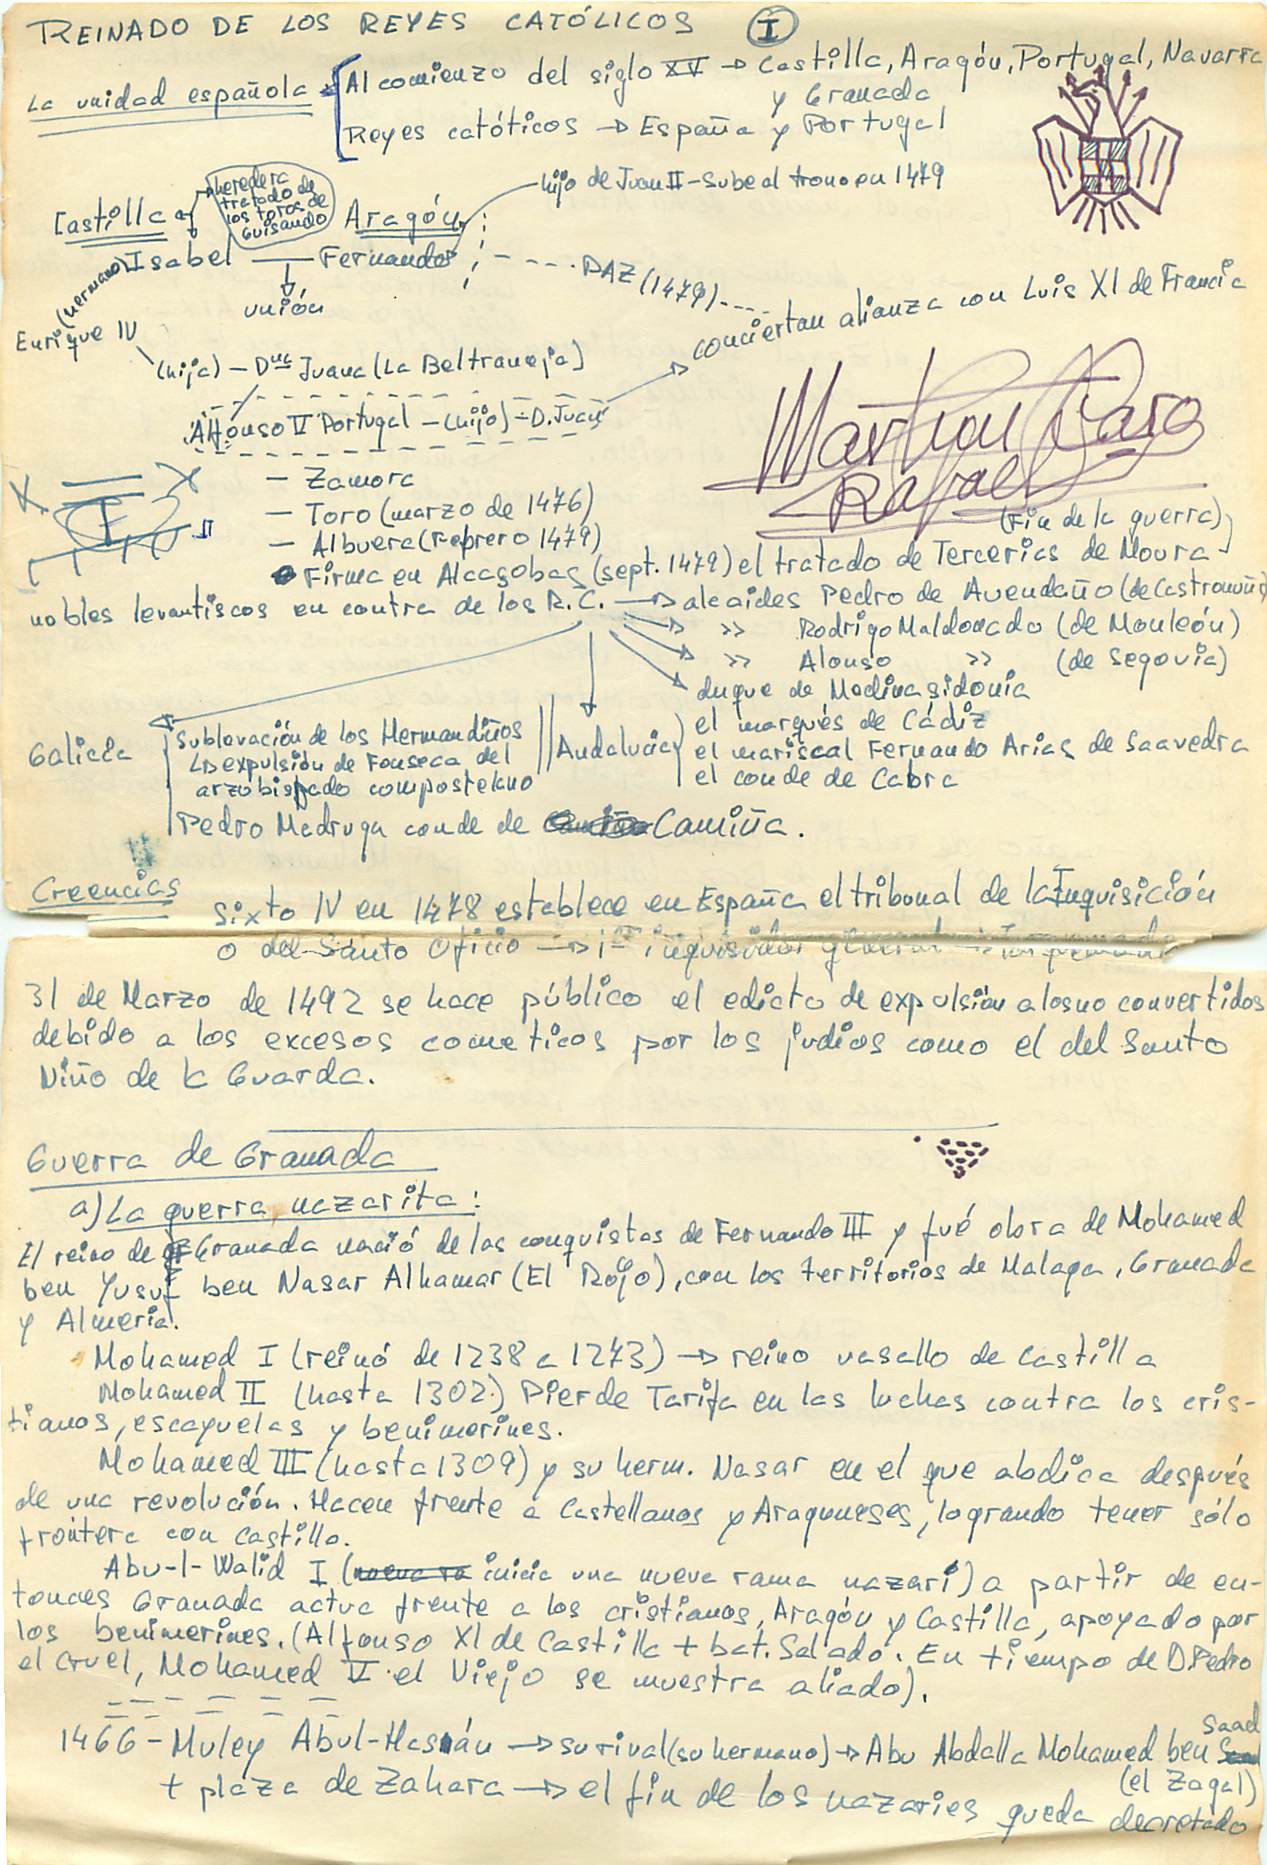 REINADO DE LOS REYES CATÓLICOS I
La unidad española
Al comienzo del siglo XV → Castilla, Aragón, Portugal, Navarra
y Granada
Reyes catóticos → España y Portugal
hijo de Juan II - Sube al trono en 1479
heredera
tratado de
los toros de
Guisando
Castilla
Aragón
Isabel — Fernando
PAZ (1479)
unión
(hermano)
Enrique IV
conciertan alianza con Luis XI de Francia
(hija) - Dña Juana (La Beltraneja)
Alfonso V Portugal - (hijo) - D. Juan
Martion Caro
Rafael
- Zamora
- Toro (marzo de 1476)
- Albuera (Febrero 1479)
(Fin de la guerra)
Firma en Alcaçobas (sept. 1479) el tratado de Tercerias de Moura
nobles levantiscos en contra de los R.C. → alcaides Pedro de Avendaño (de Castronuño)
→ » Rodrigo Maldonado (de Monleón)
→ » Alonso » (de Segovia)
duque de Medinasidonia
Galicia
Sublevación de los Hermandiños
↳ expulsión de Fonseca del
arzobispado compostelano
Pedro Madruga conde de Camiña.
Andalucia
el marqués de Cádiz
el mariscal Fernando Arias de Saavedra
el conde de Cabra
Creencias
Sixto IV en 1478 establece en España el tribunal de la Inquisición
o del Santo Oficio → 1er inquisidor general → Torquemada
31 de Marzo de 1492 se hace público el edicto de expulsión a los no convertidos
debido a los excesos cometicos por los judios como el del Santo
Niño de la Guarda.
Guerra de Granada
a) La guerra nazarita:
El reino de Granada nació de las conquistas de Fernando III y fué obra de Mohamed
ben Yusuf ben Nasar Alhamar (El Rojo), con los territorios de Malaga, Granada
y Almeria.
Mohamed I (reinó de 1238 a 1273) → reino vasallo de Castilla
Mohamed II (hasta 1302) Pierde Tarifa en las luchas contra los cris-
tianos, escayuelas y benimerines.
Mohamed III (hasta 1309) y su herm. Nasar en el que abdica después
de una revolución. Hacen frente a Castellanos y Aragoneses, logrando tener sólo
frontera con Castilla.
Abu-l-Walid I (inicia una nueva rama nazarí) a partir de en-
tonces Granada actua frente a los cristianos, Aragón y Castilla, apoyado por
los benimerines. (Alfonso XI de Castilla + bat. Salado. En tiempo de D. Pedro
el Cruel, Mohamed V el Viejo se muestra aliado).
1466 - Muley Abul-Hasán → su rival (su hermano) → Abu Abdalla Mohamed ben Saad
(el Zagal)
+ plaza de Zahara → el fin de los nazaries queda decretado